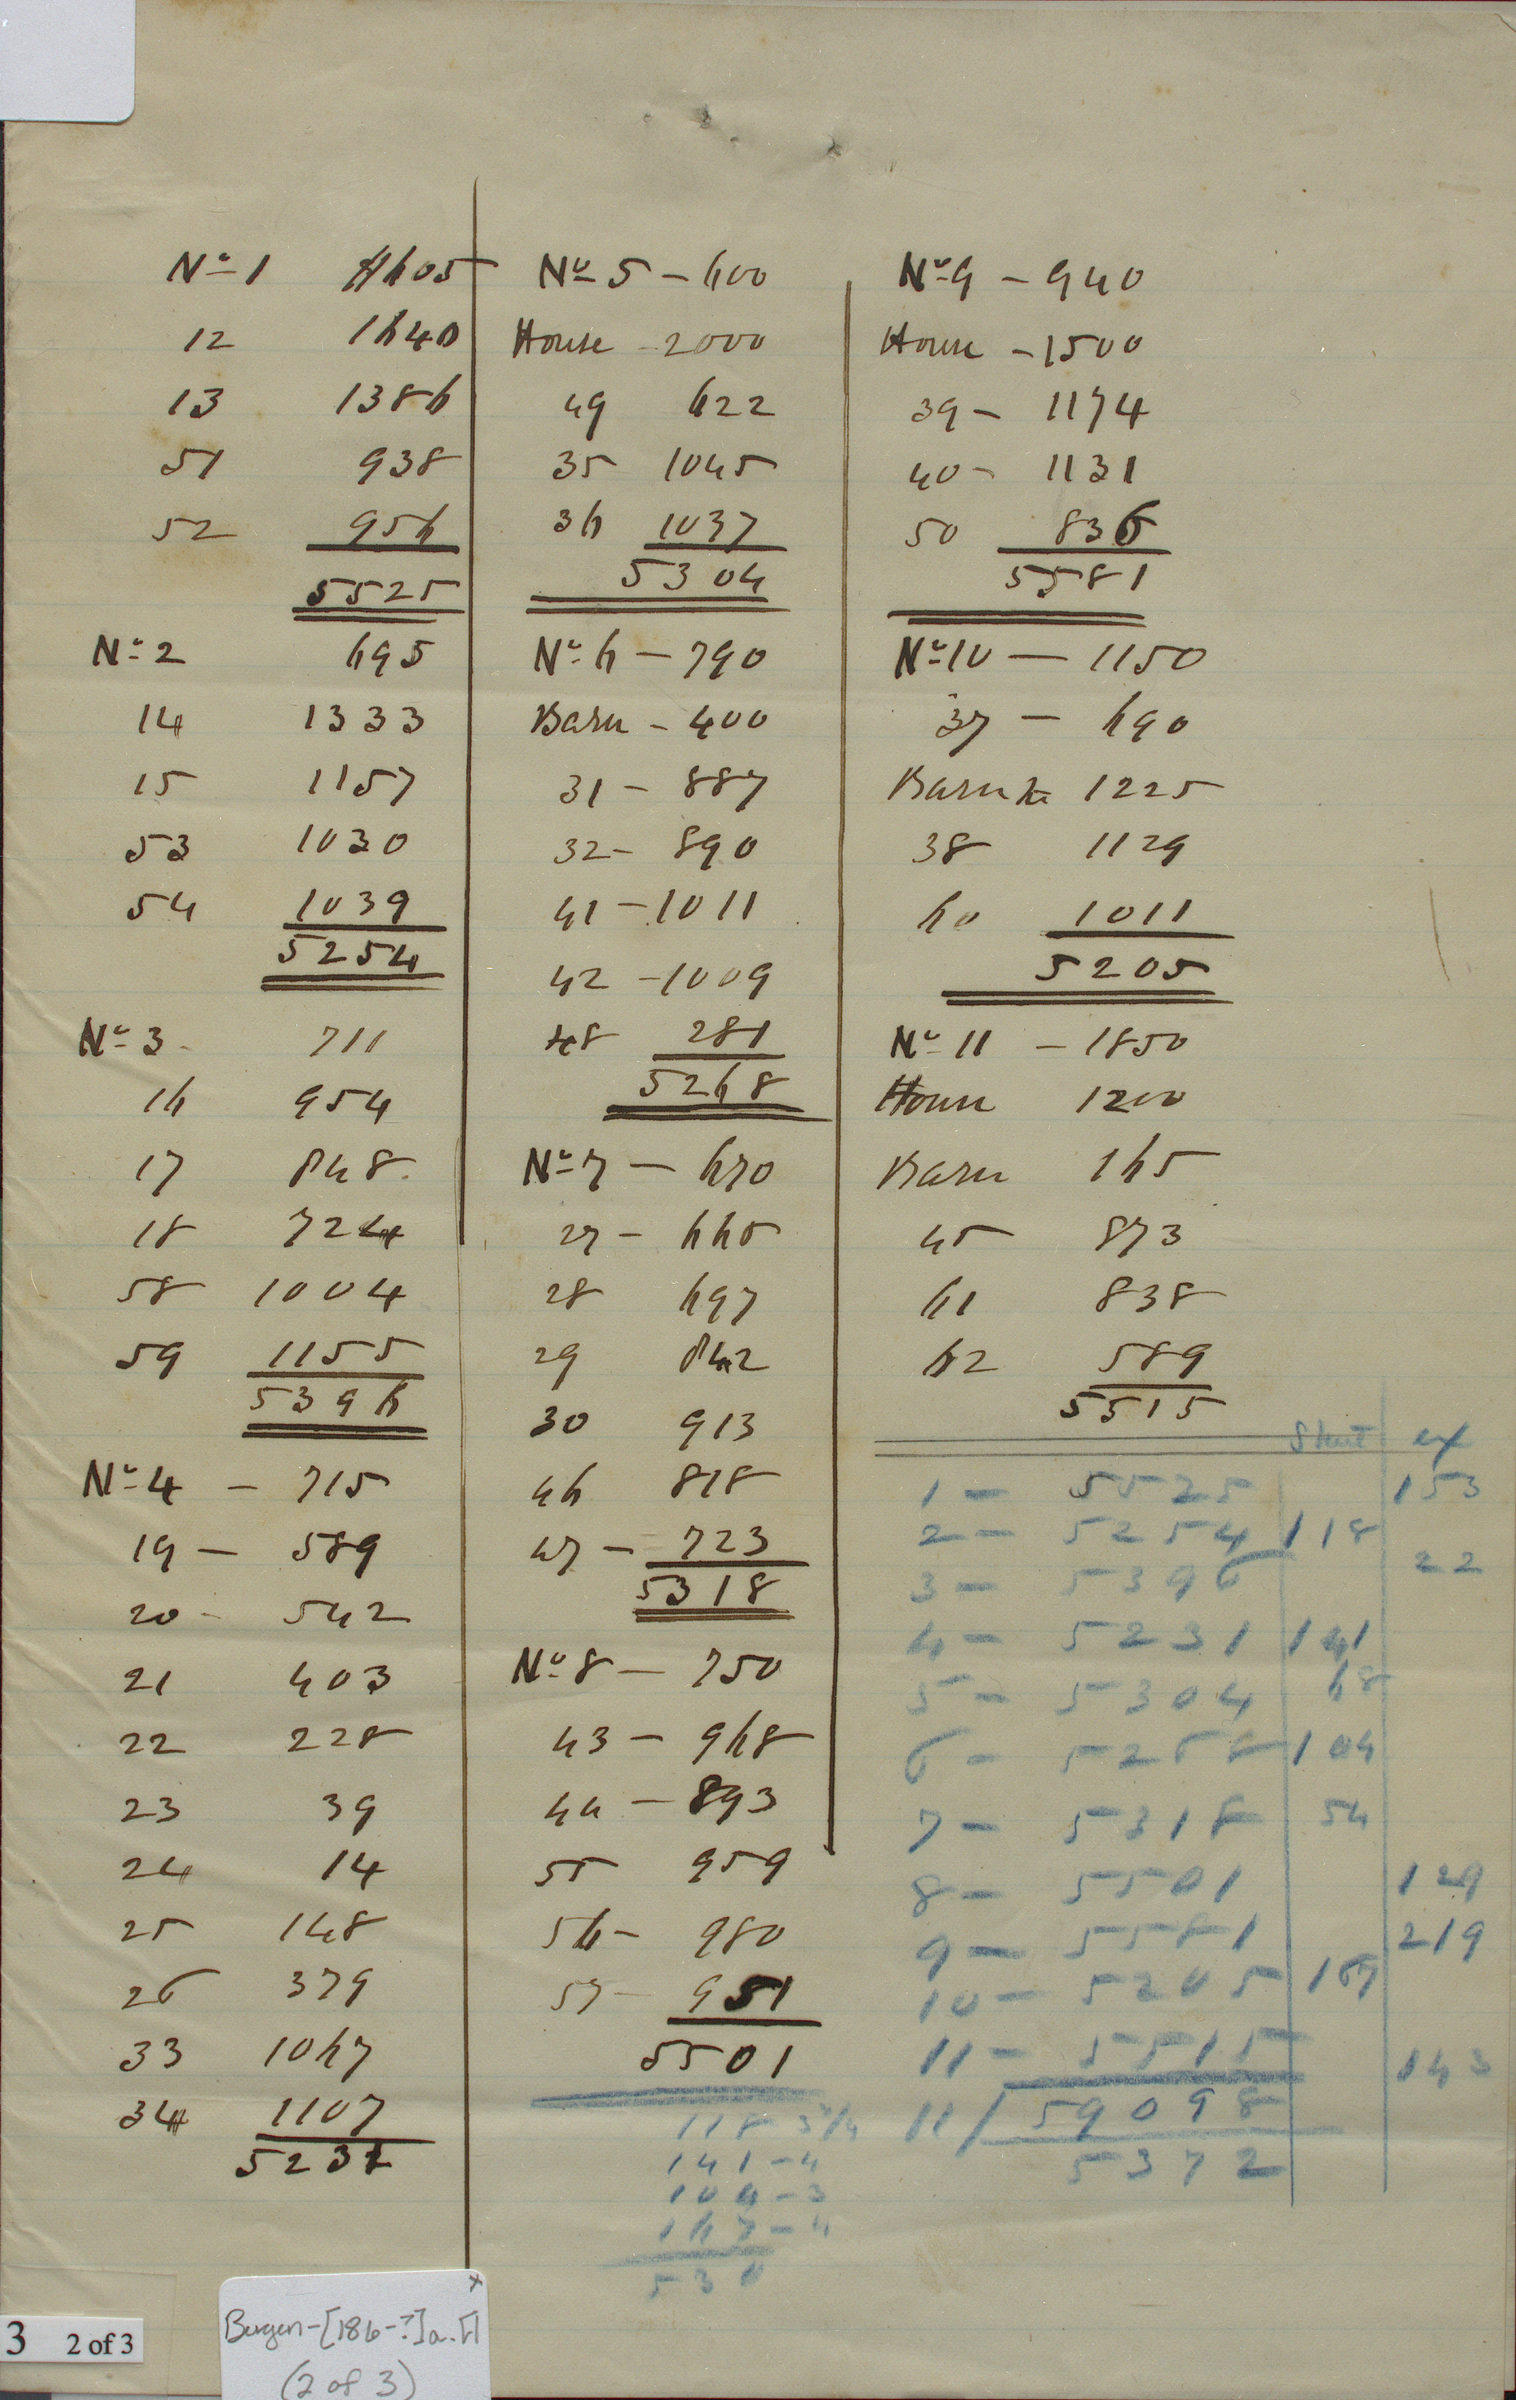 No 1 605
12 1640
13 1386
51 938
52 956
5525
No 2 695
14 1333
15 1157
53 1030
54 1039
5254
No 3 711
16 954
17 848
18 724
58 1004
59 1155
5396
No 4 - 715
19 - 589
20 - 542
21 403
22 228
23 39
24 14
25 148
26 379
33 1067
34 1107
5231
No 5 - 600
House 2000
49 622
35 1045
36 1037
5304
No 6 - 790
Barn - 400
31 - 887
32 - 890
41 - 1011
42 - 1009
48 281
5268
No 7 - 670
27 - 665
28 697
29 842
30 913
46 818
47 - 723
5318
No 8 - 750
43 - 968
44 - 893
55 959
56 - 980
57 - 951
5501
118 - 3 3/4
141 - 4
104 - 3
167 - 4
530
No 9 - 940
House - 1500
39 - 1174
40 - 1131
50 836
5581
No 10 - 1150
37 - 690
Barn 1225
38 1129
60 1011
5205
No 11 - 1850
House 1200
Barn 165
45 873
61 838
62 589
5515
Short ex
1 - 5525 153
2 - 5254 118
3 - 5396 22
4 - 5231 141
5 - 5304 68
6 - 5268 104
7 - 5318 54
8 - 5501 129
9 - 5581 219
10 - 5205 167
11 - 5515 143
11 / 59098
5372
3 2 of 3
x
Bergen-[186-?]a.Fl
(2 of 3)